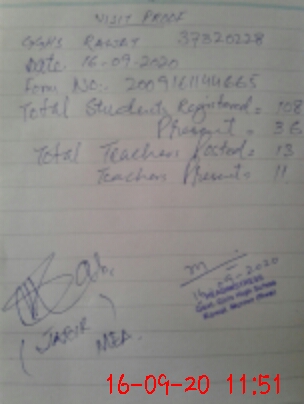 VISIT PROOF
GGHS RAWAT 37320228
Date. 16-09-2020
Form No:. 2009161144665
Total Students Registered = 108
Present = 36
Total Teachers Posted = 13
Teachers Present = 11
16-09-2020
HEADMISTRESS
Govt. Girls High School
(JABIR)
MEA.
16-09-20 11:51